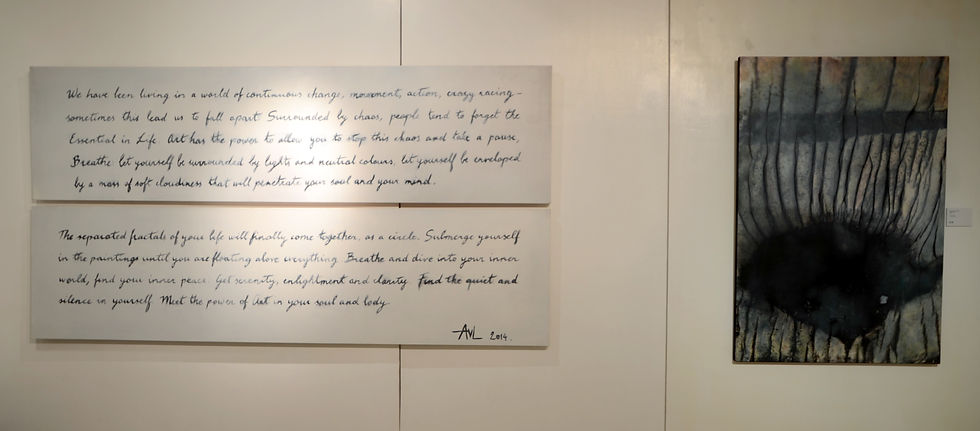 We have been living in a world of continuous change, movement, action, crazy racing -
sometimes this lead us to fall apart Surrounded by chaos, people tend to forget the
Essential in Life. Art has the power to allow you to stop this chaos and take a pause,
Breathe let yourself be surrounded by lights and neutral colours, let yourself be enveloped
by a mass of soft cloudiness that will penetrate your soul and your mind.
The separated fractals of your life will finally come together, as a circle. Submerge yourself
in the paintings until you are floating above everything. Breathe and dive into your inner
world, find your inner peace. Get serenity, enlightment and clarity. Find the quiet and
silence in yourself. Meet the power of Art in your soul and body.
AVL 2014.